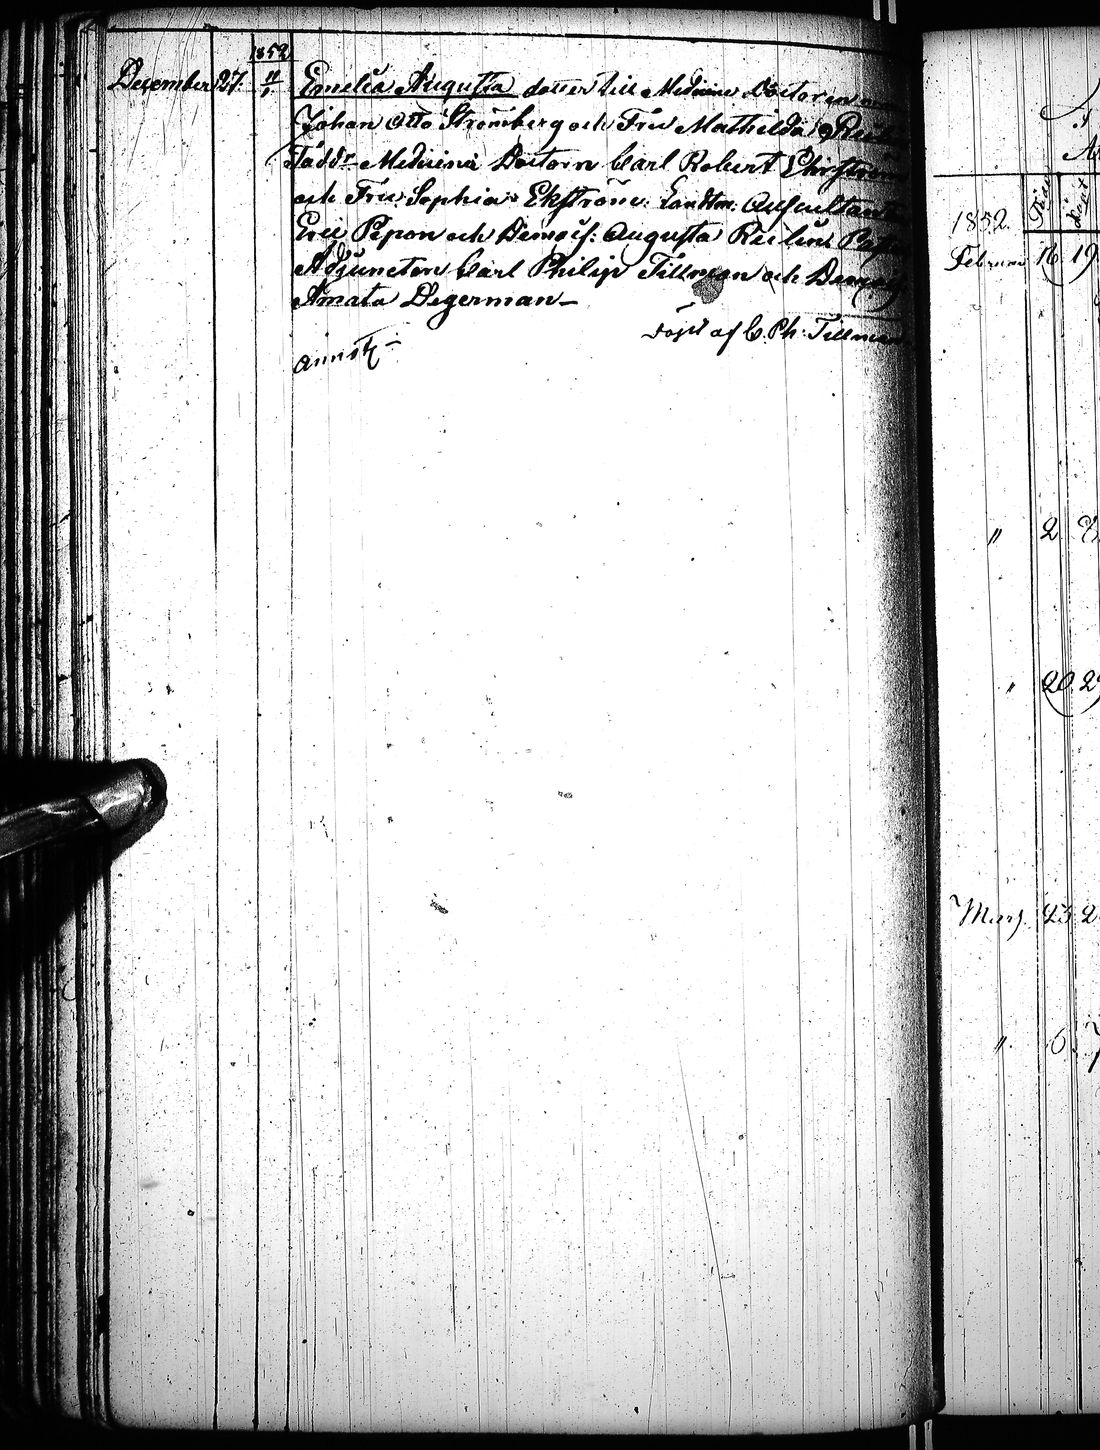 1852
December 27. 11/1 Emelia Augusta dotter till Medicine Doctorn
Johan Otto Strömberg och Fru Mathilda
Fadd:r Medicine Doctorn Carl Robert Ehrström
och Fru Sophia Ekström: Landtm: Auscultanten
Eric Pepon och Demois: Augusta
Adjuncten Carl Philip Tillman och Demois:
Amata Degerman
Döpt af C. Ph. Tillman
1852.
Februari 16 19
" 2
" 20 2
Mars 23 2
" 6